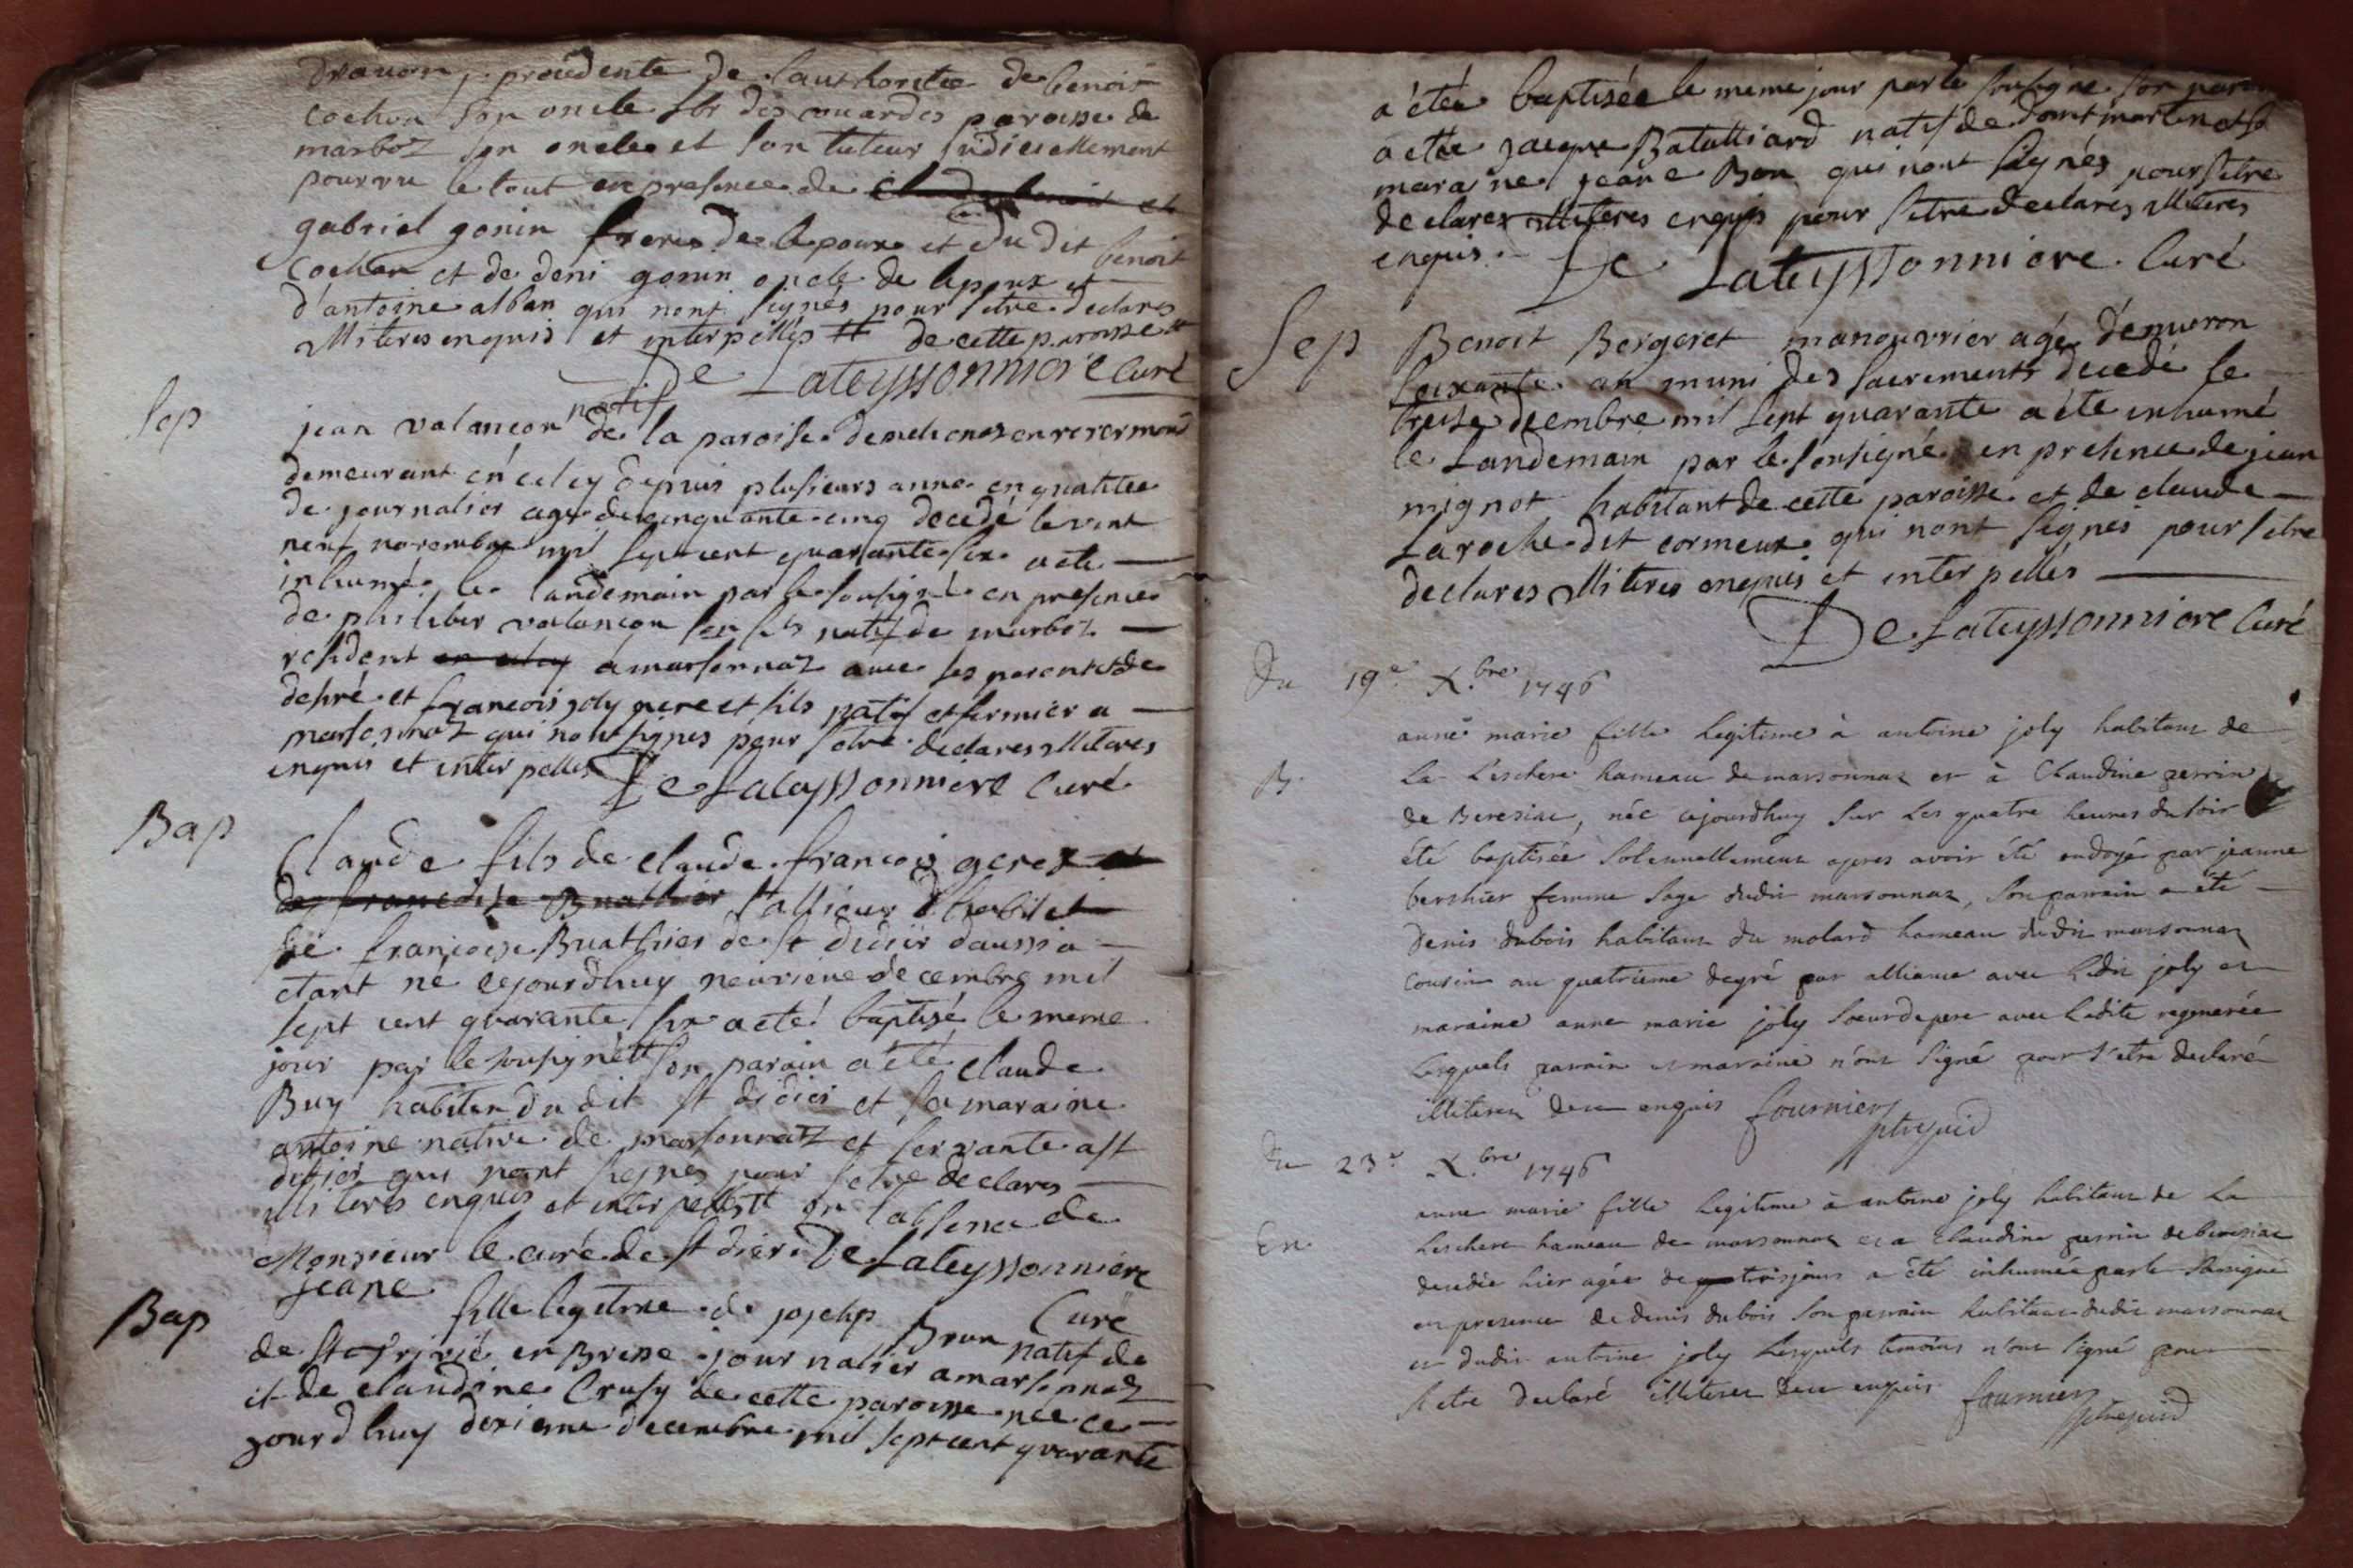 procedente de lauthoritée de benoit
cochon son oncle paroisse de
marboz son oncle et son tuteur judiciellement
pourvu le tout en presence de
gabriel gonin freres de lepoux et du dit benoit
cochon et de deni gonin oncle de lepoux et
d'antoine alban qui nont signés pour setre declares
illiteres enquis et interpellés # de cette paroisse #
De Lateyssonniere Curé
Sep
jean valancon natif de la paroisse de en revermont
demeurant en depuis plusieurs anne en qualitee
de journalier age de cinquante cinq decedé le vint
neuf novembre mil sept cent quarante six a ete
inhumé le landemain par le soussigné en presence
de philiber valancon son fils natif de marboz
resident a marsonnaz avec ses parents de
degré et francois joly pere et fils natif et fermier a
marsonnaz qui nont signes pour setre declares illiteres
enquis et interpelles De Lateyssonniere Curé
Bap
Claude fils de claude francois gerez et
de francoise Buathier
francoise Buathier de st didier daussia
etant né cejourdhuy neuvieme decembre mil
sept cent quarante six a eté baptisé le meme
jour par le soussigné # son parain a eté claude
Buy habitan du dit st didier et sa maraine
antoine native de marsonnaz et servante a st
didier qui nont signes pour setre declares
illiteres enquis et interpelles # en labsence de
Monsieur le curé de st dier De Lateyssonniere
Curé
Bap
jeane fille legitime de joseph Bron natif de
de st en Bresse journalier a marsonnaz
et de claudine Crusy de cette paroisse née ce
jourdhuy dixieme decembre mil sept cent quarante
a étée baptisée le meme jour par le soussigné son parain
a etée jacque Batailliard natif de domt martin et sa
maraine jeane Bon qui nont signés pour setre
declares illiteres enquis pour setre declares illiteres
enquis. De Lateyssonniere Curé
Sep
Benoit Bergeret manouvrier agé denviron
soixante an muni des sacrements decedé le
treise decembre mil sept quarante a été inhumé
le Landemain par le sousigné en presence de jean
mignot habitant de cette paroisse et de claude
Laroche dit cormeux qui nont signés pour setre
declares illiteres enquis et interpellés
De Lateyssonniere Curé
Du 19e X.bre 1746
B.
anne marie fille legitime à antoine joly habitant de
la Leschere hameau de marsonnaz et à Claudine perrin
de Beresiac, née cejourdhuy sur les quatre heures du soir a
été baptisée solennellement apres avoir été ondoyé par jeanne
berthier femme sage dudit marsonnaz, son parrain a été
Denis dubois habitant du molard hameau dudit marsonnaz
cousin au quatrieme degré par alliance avec ledit joly et
maraine anne marie joly soeur de pere avec ladite regnerée
lesquels parrain et maraine n'ont signé pour s'etre declaré
illiteres de ce enquis fournier
Du 23e X.bre 1746
En.
anne marie fille legitime à antoine joly habitant de la
Leschere hameau de marsonnaz et a claudine perrin de beresiac
decedée hier agée de trois jours a été inhumée par le soussigné
en presence de denis dubois son parrain habitant dudit marsonnaz
et dudit antoine joly lesquels temoins n'ont signé pour
s'etre declaré illiteres de ce enquis fournier